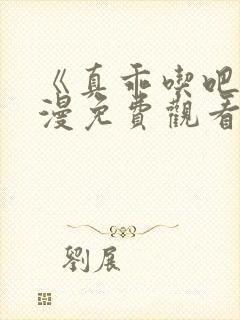 《真乖喫吧
漫免費觀看
劉展